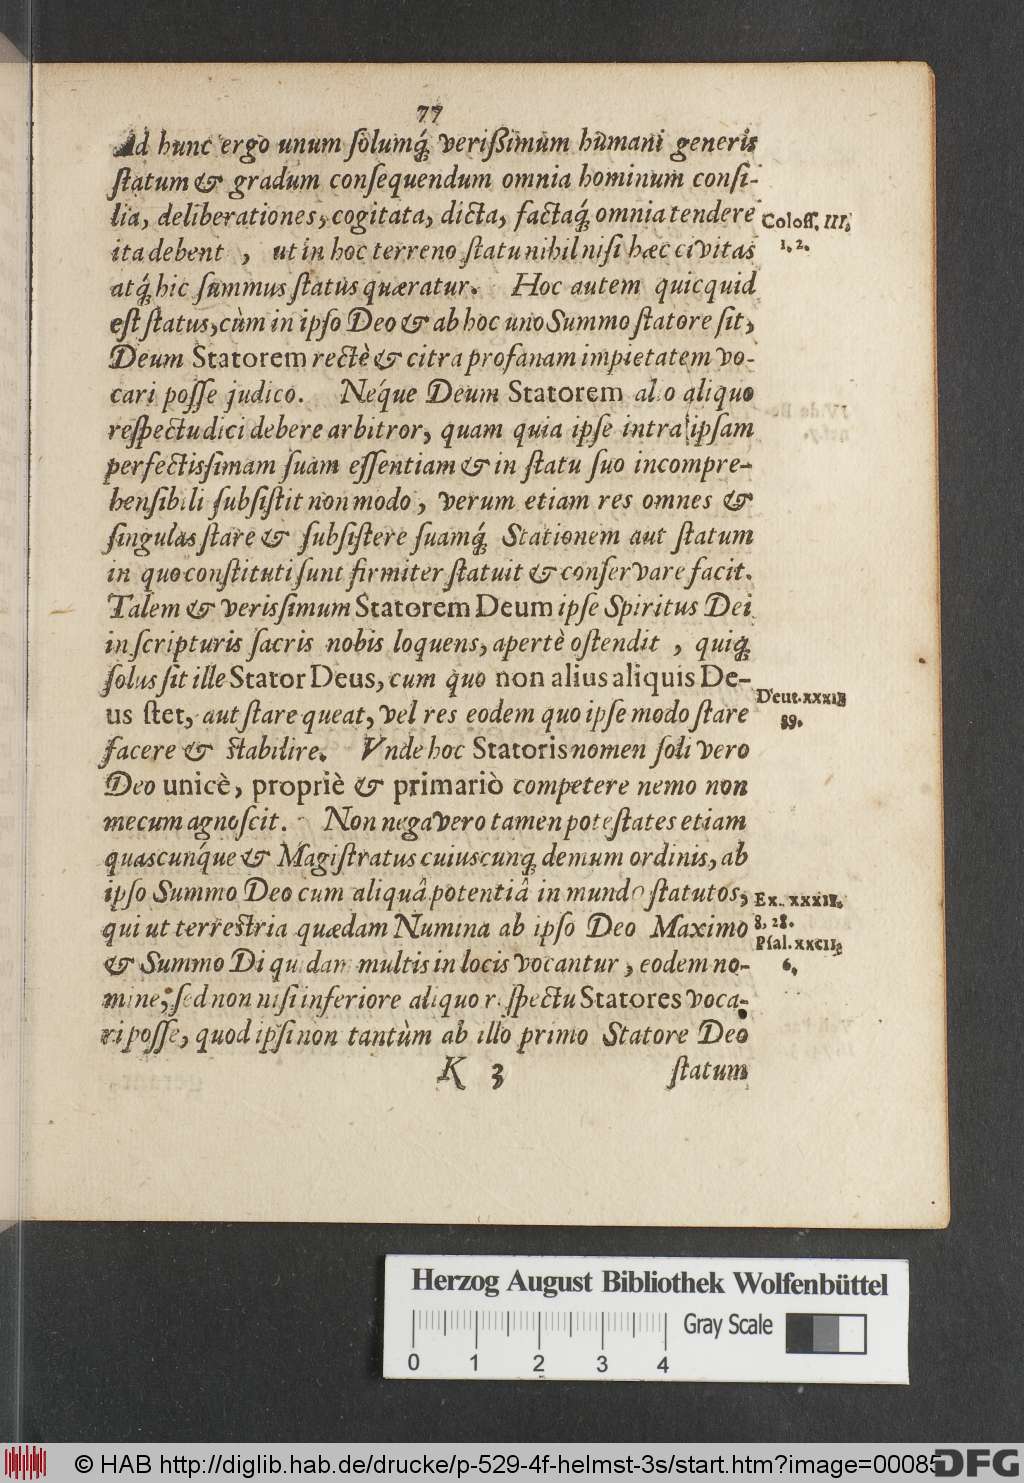 77
Ad hunc ergo unum ſolumq́; veriſſimum humani generis
ſtatum & gradum conſequendum omnia hominum conſi-
lia, deliberationes, cogitata, dicta, factaq́; omnia tendere
ita debent, ut in hoc terreno ſtatu nihil niſi hæc civitas
atq́; hic ſummus ſtatus quæratur. Hoc autem quicquid
eſt ſtatus, cùm in ipſo Deo & ab hoc uno Summo ſtatore ſit,
Deum Statorem rectè & citra profanam impietatem vo-
cari poſſe judico. Néque Deum Statorem alio aliquo
reſpectu dici debere arbitror, quam quia ipſe intra ipſam
perfectissimam ſuam eſſentiam & in ſtatu ſuo incompre-
henſibili ſubſiſtit non modo, verum etiam res omnes &
ſingulas ſtare & ſubſiſtere ſuamq́; Stationem aut ſtatum
in quo conſtituti ſunt firmiter ſtatuit & conſervare facit.
Talem & verisſimum Statorem Deum ipſe Spiritus Dei
in ſcripturis ſacris nobis loquens, apertè oſtendit, quiq́;
ſolus ſit ille Stator Deus, cum quo non alius aliquis De-
us ſtet, aut ſtare queat, vel res eodem quo ipſe modo ſtare
facere & ſtabilire. Vnde hoc Statoris nomen ſoli vero
Deo unicè, propriè & primariò competere nemo non
mecum agnoſcit. Non nega vero tamen poteſtates etiam
quascunq́ue & Magiſtratus cuiuscunq; demum ordinis, ab
ipſo Summo Deo cum aliquâ potentiâ in mundo ſtatutos,
qui ut terreſtria quædam Numina ab ipſo Deo Maximo
& Summo Di quidam multis in locis vocantur, eodem no-
mine, ſed non niſi inferiore aliquo reſpectu Statores voca-
ri poſſe, quod ipſi non tantùm ab illo primo Statore Deo
K 3 ſtatum
Coloſſ. III.
1. 2.
Deut. xxxii
39.
Ex. xxxii.
8. 28.
Pſal. xxcii.
6.
Herzog August Bibliothek Wolfenbüttel
Gray Scale
0 1 2 3 4
© HAB http://diglib.hab.de/drucke/p-529-4f-helmst-3s/start.htm?image=00085
DFG